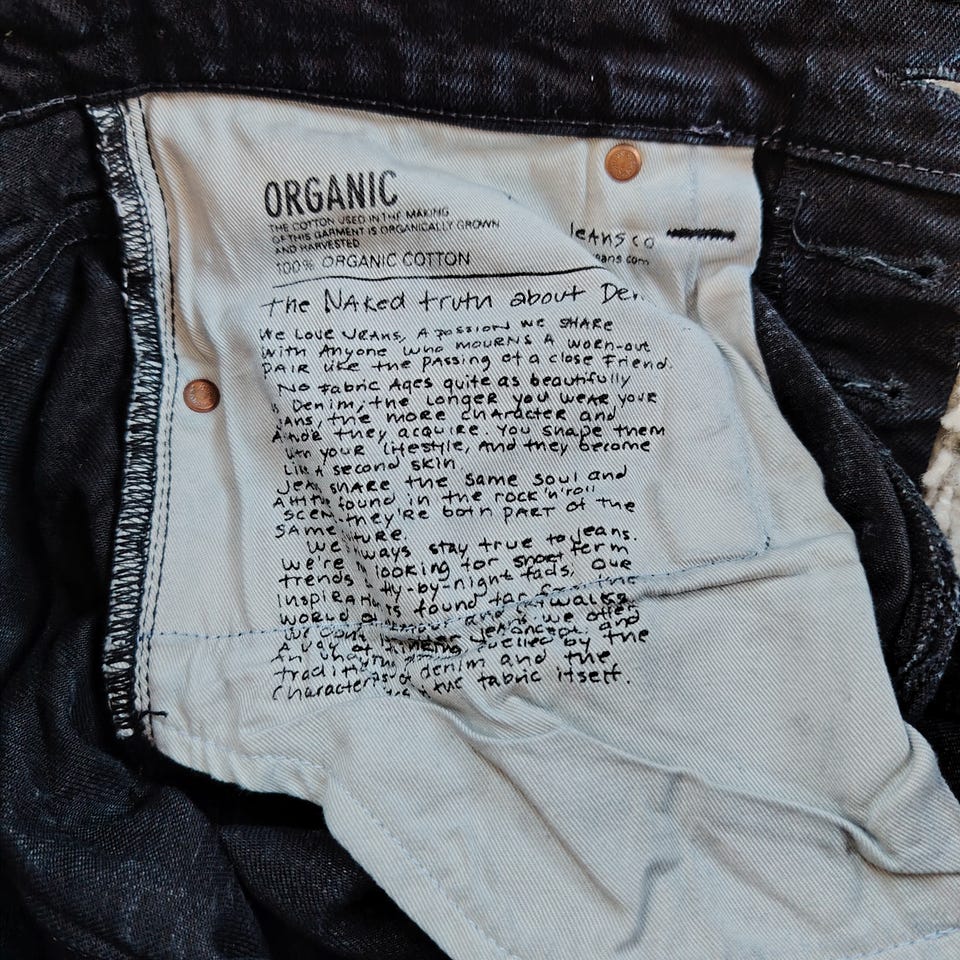 ORGANIC
THE COTTON USED IN THE MAKING
OF THIS GARMENT IS ORGANICALLY GROWN
AND HARVESTED
100% ORGANIC COTTON
JEANS CO
eans.com
the NAked truth about Den
We LOVE JEANS, A PASSION WE SHARE
with Anyone who MOURNS A WORN-out
PAIR like the PASSING of a close Friend.
No Fabric Ages quite as beautifully
as Denim; the LONGER you WEAR YOUR
JEANS, the more CHARACTER and
they acquire. You shape them
with your Lifestyle, And they become
Like A second skin
JEANS SHARE the same soul and
Attitude found in the rock'n'roll
scene they're both PART of the
SAME
We always stay true to Jeans.
We're looking for short term
trends fly-by-night fads. Our
INSPIRATION IS found far from the
WORLD of and catwalks.
We DON'T we offer
A WAY of thinking fuelled by the
traditions of denim and the
Character the fabric itself.